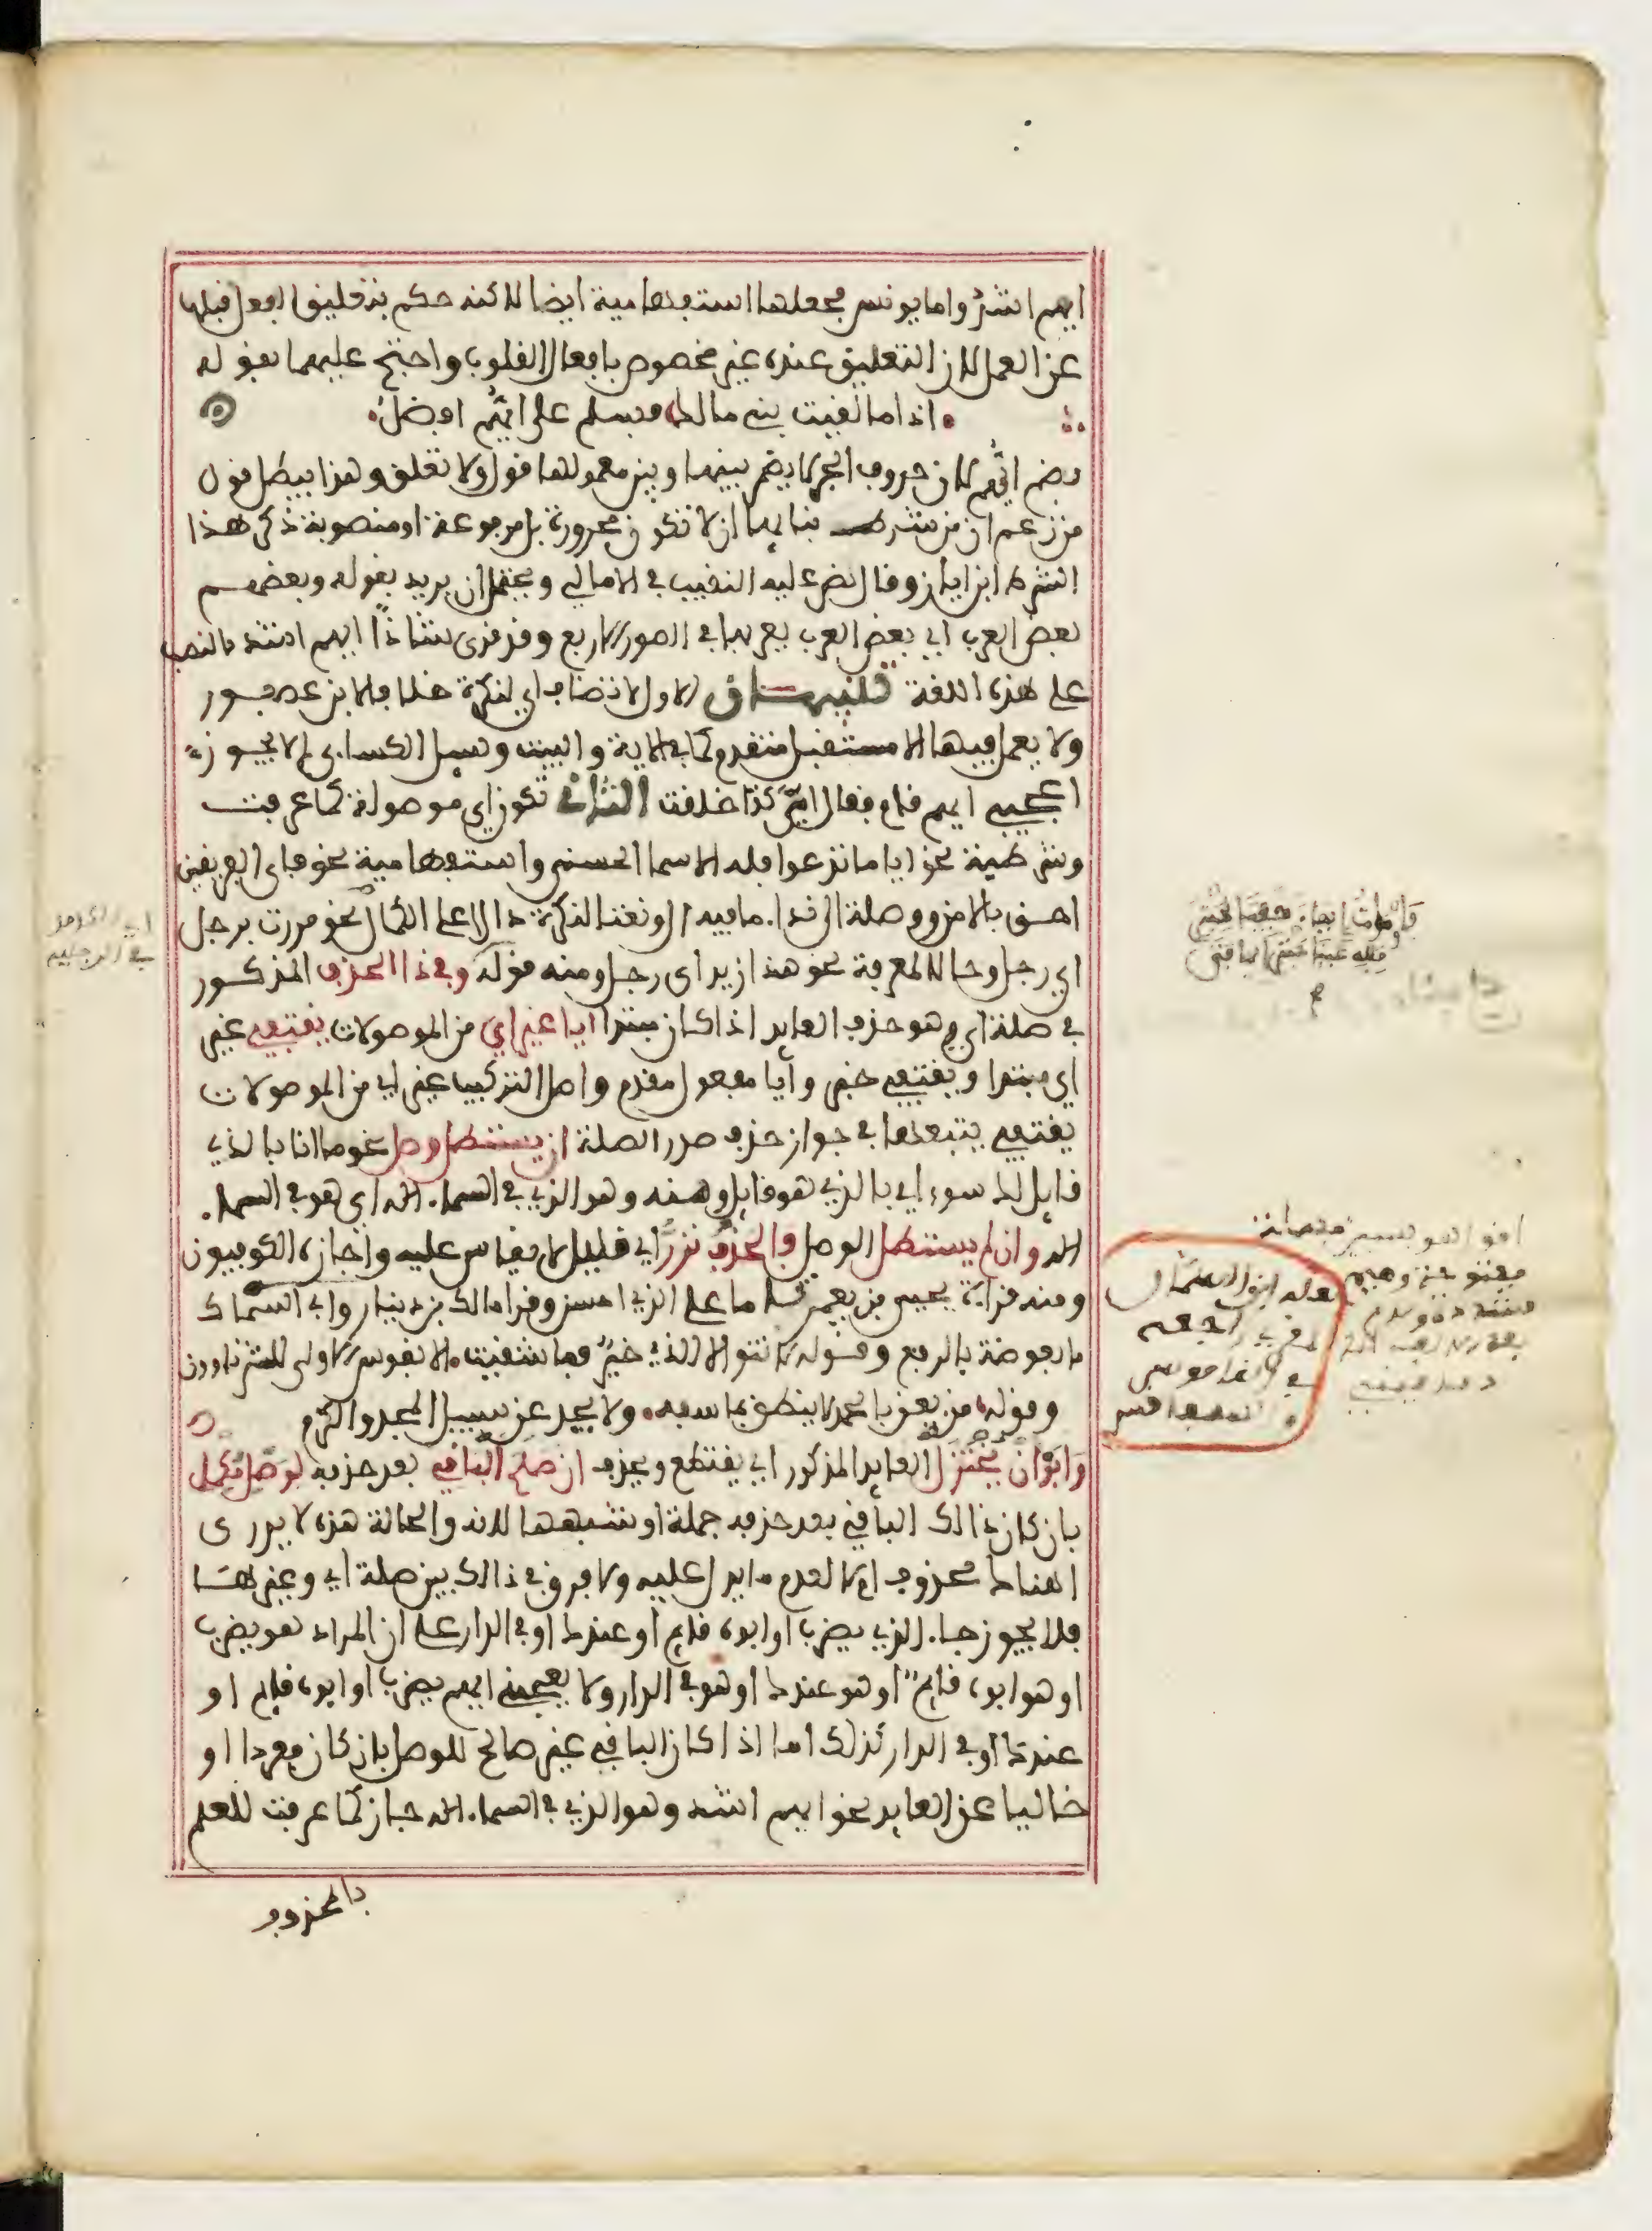 ايهم اشد واما يونس فجعلها استفهامية ايضا لاكنه حكم بتعليق الفعل قبلها
عن العمل لان التعليق عنده غير مخصوص بافعال القلوب واحتج عليهما بقوله
اذا ما لقيت بني مالك فسلم على ايُّهم افضل
بضم ايُّهم لان حروف الجر لا يضمر بينها وبين معمولها قول ولا تعلق وهذا يبطل قول
من زعم ان من شرط بنايها ان لا تكون مجرورة بل مرفوعة او منصوبة ذكر هذا
الشرط ابن اياز وقال نص عليه النقيب في الامالي ويحتمل ان يريد بقوله وبعضهم
بعض العرب اي بعض العرب يعربها في الصور الاربع وقد قرئ شاذاً ايهم اشد بالنصب
على هذه اللغة تنبيهان الاول لا تضاف اي لنكرة خلافا لابن عصفور
ولا يعمل فيها الا مستقبل متقدم كما في الاية والبيت وسيل الكسائي لم لا يجوز
اعجبني ايهم قام فقال ايٌّ كذا خلقت الثاني تكون اي موصولة كما عرفت
وشرطية نحو ايا ما تدعوا فله الاسما الحسنى واستفهامية نحو فاي الفريقين
احق بالامن ووصلة الى ندا ما فيه ال ونعتا لنكرة دالا على الكمال نحو مررت برجل
اي رجل وحالا لمعرفة نحو هذا زيد اي رجل ومنه قوله وفي ذا الحذف المذكور
في صلة اي وهو حذف العايد اذا كان مبتدا ايا غير اي من الموصولات يقتفي غير
اي مبتدا ويقتفي خبر وأيا مفعول مقدم واصل التركيب غير اي من الموصولات
يقتفي يتبعها في جواز حذف صدر الصلة ان يستطل وصل نحو ما انا بالذي
قايل لك سوءا اي بالذي هو قايل ومنه وهو الذي في السما اله اي هو في السما
اله وان لم يستطل الوصل فالحذف نزر اي قليل لا يقاس عليه واجازه الكوفيون
ومنه قراءة يحيى بن يعمر تماما على الذي احسن وقرا مالك بن دينار وابن السماك
ما بعوضة بالرفع وقوله لا تنو الا الذي خيرٌ فما شقيت الا نفوس الاولى للشر ناوون
وقوله من يعن بالحمد لا ينطق بما سفه ولا يحد عن سبيل المجد والكرم
وَابَوْا أن يُختزل العايد المذكور اي يقتطع ويحذف ان صلح الباقي بعد حذفه لوصل مكمل
بان كان ذالك الباقي بعد حذفه جملة او شبهها لانه والحالة هذه لا يدرى
اهناك محذوف ام لا لعدم ما يدل عليه ولا فرق في ذالك بين صلة اي وغيرها
فلا يجوز جا الذي يضرب او ابوه قايم او عندك او في الدار على ان المراد هو يضرب
او هو ابوه قايم او هو عندك او هو في الدار ولا يعجبني ايهم يضرب او ابوه قايم او
عندك او في الدار كذلك اما اذا كان الباقي غير صالح للوصل بان كان مفردا او
خاليا عن العايد نحو ايهم اشد وهو الذي في السما اله جاز كما عرفت للعلم
بالمحذوف